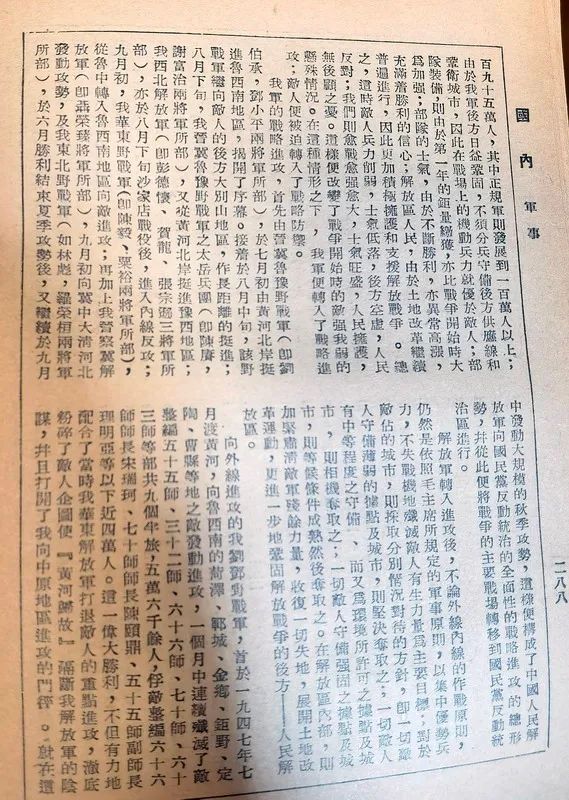 國內軍事
二八八
百九十五萬人，其中正規軍則發展到一百萬人以上；
由於我軍後方日益鞏固，不須分兵守備後方供應線和
鞏衛城市，因此在戰場上的機動兵力就優於敵人；部
隊裝備，則由於第一年的鉅量繳獲，亦比戰爭開始時大
爲加强；部隊的士氣，由於不斷勝利，亦異常高漲，
充滿着勝利的信心；解放區人民，由於土地改革繼續
普遍進行，因此更加積極擁護和支援解放戰爭。總
之，這時敵人兵力削弱，士氣低落，後方空虛，人民
反對；我們則愈戰愈强愈大，士氣旺盛，人民擁護，
無後顧之憂。這樣便改變了戰爭開始時的敵强我弱的
懸殊情況。在這種情形之下，我軍便轉入了戰略進
攻；敵人便被迫轉入了戰略防禦。
我軍的戰略進攻，首先由晉冀魯豫野戰軍（卽劉
伯承，鄧小平兩將軍所部），於七月初由黃河北岸挺
進魯西南地區，揭開了序幕。接着於八月中旬，該野
戰軍繼向敵人的後方大別山地區，作長距離的挺進；
八月下旬，我晉冀魯豫野戰軍之太岳兵團（卽陳賡，
謝富治兩將軍所部），又從黃河北岸挺進豫西地區；
我西北解放軍（卽彭德懷、賀龍、張宗遜三將軍所
部），亦於八月下旬沙家店戰役後，進入內線反攻；
九月初，我華東野戰軍（卽陳毅、粟裕兩將軍所部），
從魯中轉入魯西南地區向敵進攻；再加上我晉察冀解
放軍（卽聶榮臻將軍所部），九月初向冀中大清河北
發動攻勢，及我東北野戰軍（如林彪，羅榮桓兩將軍
所部），於六月勝利結束夏季攻勢後，又繼續於九月
中發動大規模的秋季攻勢，這樣便構成了中國人民解
放軍向國民黨反動統治的全面性的戰略進攻的總形
勢，幷從此便將戰爭的主要戰場轉移到國民黨反動統
治區進行。
解放軍轉入進攻後，不論外線內線的作戰原則，
仍然是依照毛主席所規定的軍事原則，以集中優勢兵
力，不失戰機地殲滅敵人有生力量爲主要目標；對於
敵佔的城市，則採取分別情況對待的方針，卽一切敵
人守備薄弱的據點及城市，則堅决奪取之；一切敵人
有中等程度之守備、而又爲環境所許可之據點及城
市，則相機奪取之；一切敵人守備强固之據點及城
市，則等候條件成熟然後奪取之。在解放區內部，則
加緊肅清敵軍殘餘力量，收復一切失地，展開土地改
革運動，更進一步地鞏固解放戰爭的後方──人民解
放區。
向外線進攻的我劉鄧野戰軍，首於一九四七年七
月渡黃河，向魯西南的菏澤、鄆城、金鄉、鉅野、定
陶、曹縣等地之敵發動進攻，一個月中連續殲滅了敵
整編五十五師、三十二師、六十六師、七十師、六十
三師等部共九個半旅，五萬六千餘人，俘敵整編六十六
師師長宋瑞珂、七十師師長陳頤鼎、五十五師副師長
理明亞等以下近四萬人。這一偉大勝利，不但有力地
配合了當時我華東解放軍打退敵人的重點進攻，澈底
粉碎了敵人企圖使『黃河歸故』隔斷我解放軍的陰
謀，幷且打開了我向中原地區進攻的門徑。。就在這